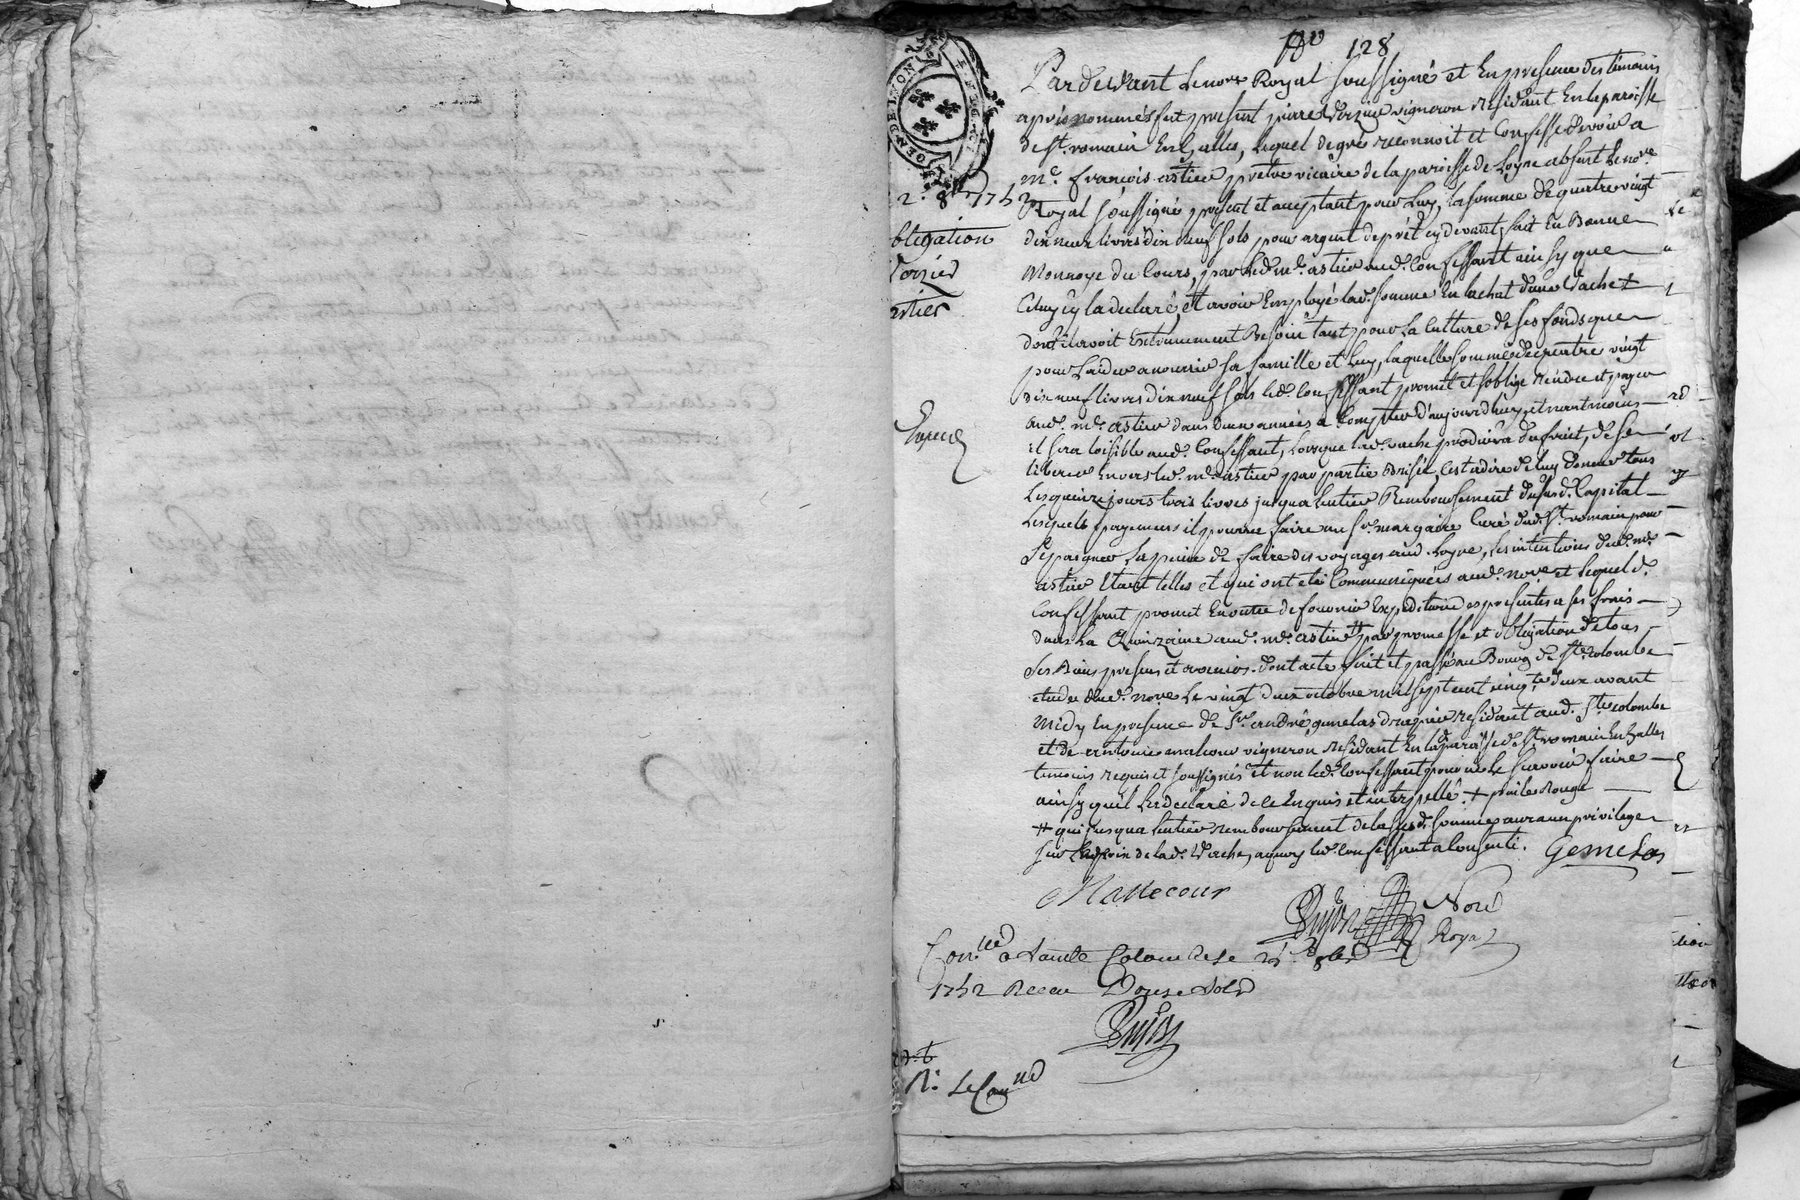 No 128
GEN. DE LYON
2. 8bre 1752
obligation
Verzier
astier
Expedié
Pardevant le nore Royal soussigné et En presence des témoins
aprés nommés fut present pierre Verzier vigneron residant En la paroisse
de St. romain En galles, lequel de gré reconnoit et Confesse devoir a
Me. françois astier prêtre vicaire de la paroisse de Loyre absent le nore.
Royal soussigné present et acceptant pour luy, la somme de quatre vingt
dix neuf livres dix neuf sols pour argent de prêt cy devant fait En Bonne
Monnoye du Cours, par led. me. astier aud. confessant ainsy que
Celuy cy la declaré, et avoir Employé lad. somme En lachat d'une Vache +
dont il avoit Extremement Besoin tant pour la Culture de ses fonds que
pour laider a nourrir sa famille et luy, laquelle somme de quatre vingt
dix neuf livres dix neuf sols led. confessant promet et soblige rendre et payer
aud. me. astier dans deux années a Compter d'aujourd'huy, et neantmoins
il sera loisible aud. Confessant, lorsque lad. vache produira du fruit, de se
liberer envers led. me. astier par partie Brisée, cest adire de luy donner tous
les quinze jours trois livres jusqua l'entier Remboursement dud. Capital
lesquels payemens il pourra faire au sr. margaire Curé dud. St. romain pour
s'Epargner la peine de faire des voyages aud. Loyre, les intentions dud. me.
astier Etant telles et qui ont eté Communiquées aud. nore et lequel d.
Confessant promet En outre de fournir Expedition des presentes a ses frais
dans la Quinzaine aud. me. astier, par promesse et obligation de tous
ses Biens presens et avenirs. dont acte fait et passé au Bourg de Ste. colombe
etude dud. nore. le vingt deux octobre mil sept cent cinqte. deux avant
midy En presence de Sr. andré gemelas droguiste residant aud. Ste colombe
et de antoine malecour vigneron residant En lad. paroisse de St. romain En Galles
temoins requis et soussignés et non led. confessant pour ne le sçavoir faire
ainsy quil la declaré de ce Enquis et interpellé. + poil rouge
# qui jusqua lentier remboursement de la susd. somme aura un privilege
sur le prix de lad. Vache, aquoy led. confessant a consenti. Gemelas
Mallecour
Dujas Nore
Royal
Conllé a Sainte Colombe le 8bre
1752 Receu Douze sols
Dujas